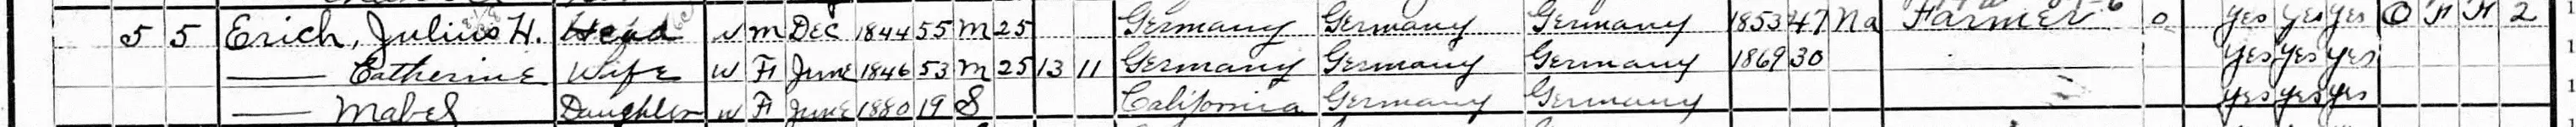 5 5 Erich, Julius H. Head W M Dec 1844 55 M 25 Germany Germany Germany 1853 47 Na Farmer 0 yes yes yes O F F 2
—— Catherine Wife W F June 1846 53 M 25 13 11 Germany Germany Germany 1869 30 yes yes yes
—— Mabel Daughter W F June 1880 19 S California Germany Germany yes yes yes